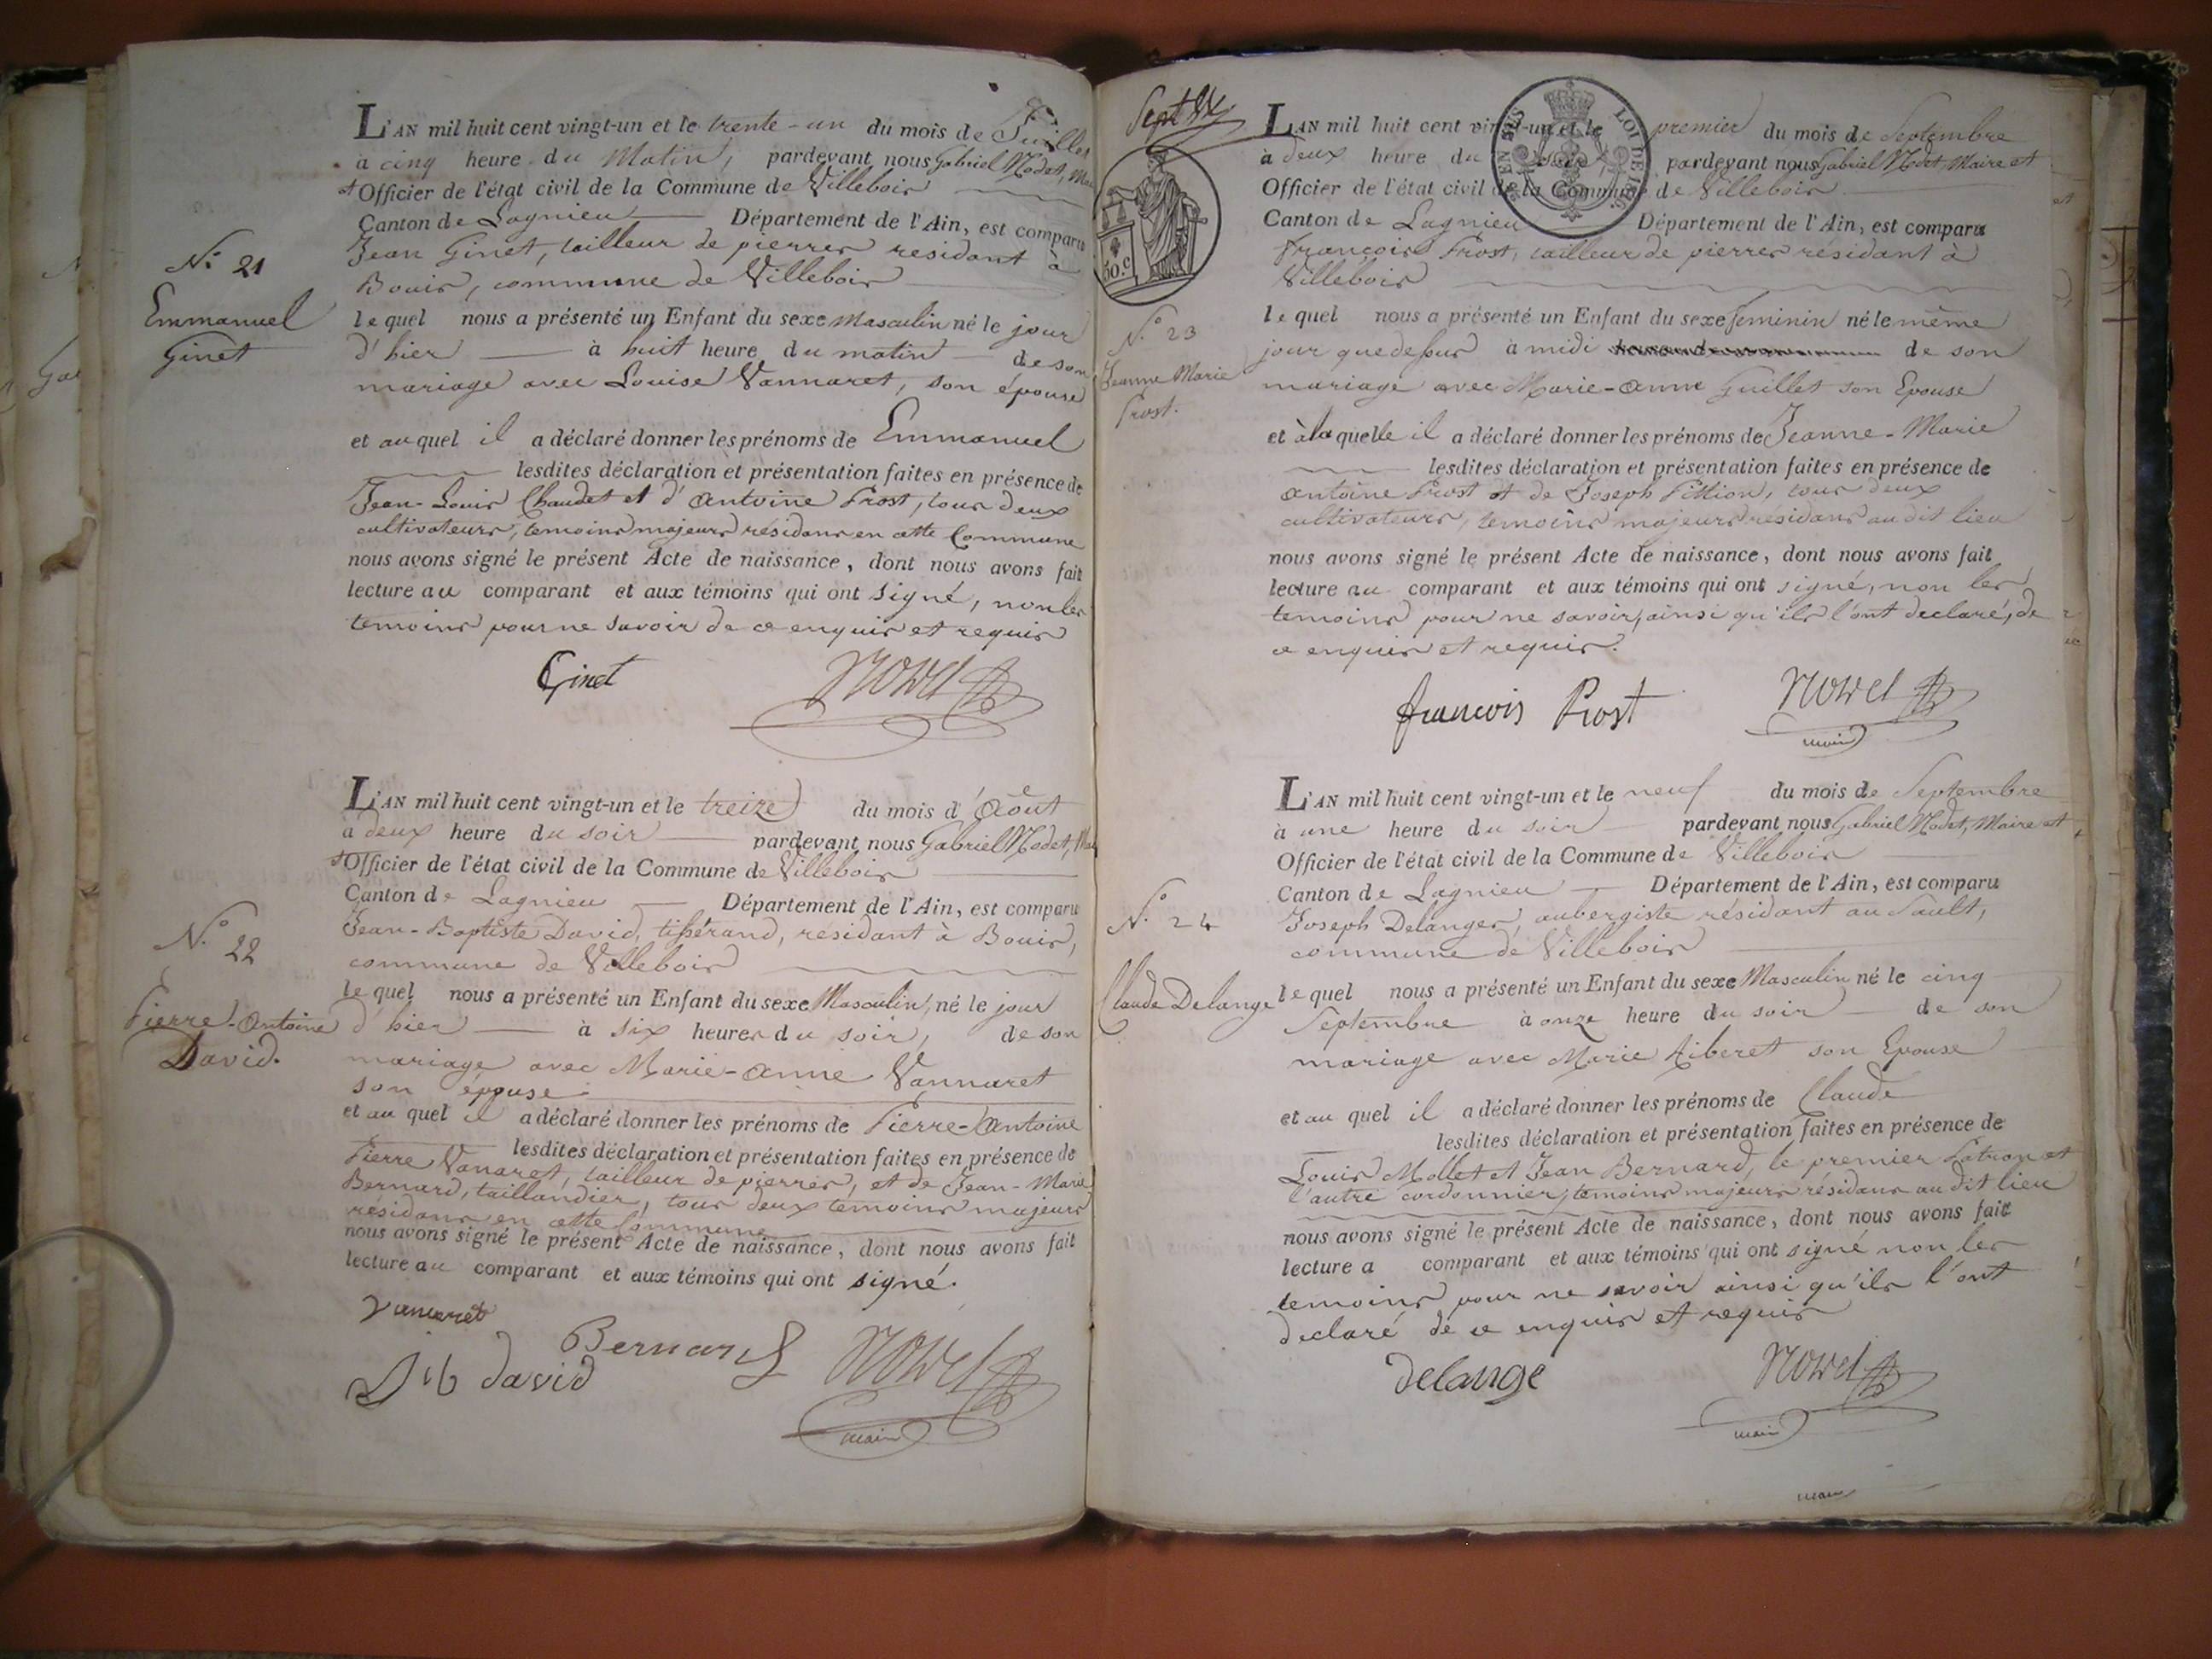 N.° 21
Emmanuel
Ginet
L'AN mil huit cent vingt-un et le trente-un du mois de Juillet
à cinq heure du Matin, pardevant nous Gabriel Nodet,
et Officier de l'état civil de la Commune de Villebois
Canton de Lagnieu Département de l'Ain, est comparu
Jean Ginet, tailleur de pierres residant à
Bouis, commune de Villebois
le quel nous a présenté un Enfant du sexe Masculin né le jour
d'hier à huit heure du matin de son
mariage avec Louise Vannaret, son épouse
et au quel il a déclaré donner les prénoms de Emmanuel
lesdites déclaration et présentation faites en présence de
Jean-Louis Chaudet et d'Antoine Prost, tous deux
cultivateurs, temoins majeurs résidans en cette Commune
nous avons signé le présent Acte de naissance, dont nous avons fait
lecture au comparant et aux témoins qui ont signé, non les
temoins pour ne savoir de ce enquis et requis
Ginet
N.° 22
Pierre-Antoine
David.
L'AN mil huit cent vingt-un et le treize du mois d'Août
à deux heure du soir pardevant nous Gabriel Nodet,
et Officier de l'état civil de la Commune de Villebois
Canton de Lagnieu Département de l'Ain, est comparu
Jean-Baptiste David, tisserand, résidant à Bouis,
commune de Villebois
le quel nous a présenté un Enfant du sexe Masculin, né le jour
d'hier à six heures du soir, de son
mariage avec Marie-Anne Vannaret
son épouse
et au quel il a déclaré donner les prénoms de Pierre-Antoine
lesdites déclaration et présentation faites en présence de
Pierre Vanaret, tailleur de pierres, et de Jean-Marie
Bernard, taillandier, tous deux temoins majeurs
résidans en cette Commune
nous avons signé le présent Acte de naissance, dont nous avons fait
lecture au comparant et aux témoins qui ont signé.
Vanaret
Bernard
david
maire
50.c
N.° 23
Jeanne Marie
Prost.
L'AN mil huit cent vingt-un et le premier du mois de Septembre
à deux heure du soir pardevant nous Gabriel Nodet, Maire et
Officier de l'état civil de la Commune de Villebois
Canton de Lagnieu Département de l'Ain, est comparu
François Prost, tailleur de pierres résidant à
Villebois
le quel nous a présenté un Enfant du sexe feminin né le même
jour que dessus à midi de son
mariage avec Marie-Anne Guillet son Epouse
et à la quelle il a déclaré donner les prénoms de Jeanne-Marie
lesdites déclaration et présentation faites en présence de
Antoine Prost et de Joseph Pittion, tous deux
cultivateurs, temoins majeurs résidans au dit lieu
nous avons signé le présent Acte de naissance, dont nous avons fait
lecture au comparant et aux témoins qui ont signé, non les
temoins pour ne savoir, ainsi qu'ils l'ont declaré, de
ce enquis et requis.
francois Prost
maire
N.° 24
Claude Delange
L'AN mil huit cent vingt-un et le neuf du mois de Septembre
à une heure du soir pardevant nous Gabriel Nodet, Maire et
Officier de l'état civil de la Commune de Villebois
Canton de Lagnieu Département de l'Ain, est comparu
Joseph Delanges, aubergiste résidant au Sault,
commune de Villebois
le quel nous a présenté un Enfant du sexe Masculin né le cinq
Septembre à onze heure du soir de son
mariage avec Marie Riberet son Epouse
et au quel il a déclaré donner les prénoms de Claude
lesdites déclaration et présentation faites en présence de
Louis Mollet et Jean Bernard, le premier Patron et
l'autre cordonnier, temoins majeurs résidans au dit lieu
nous avons signé le présent Acte de naissance, dont nous avons fait
lecture a comparant et aux témoins qui ont signé non les
temoins pour ne savoir ainsi qu'ils l'ont
declaré de ce enquis et requis
delange
maire